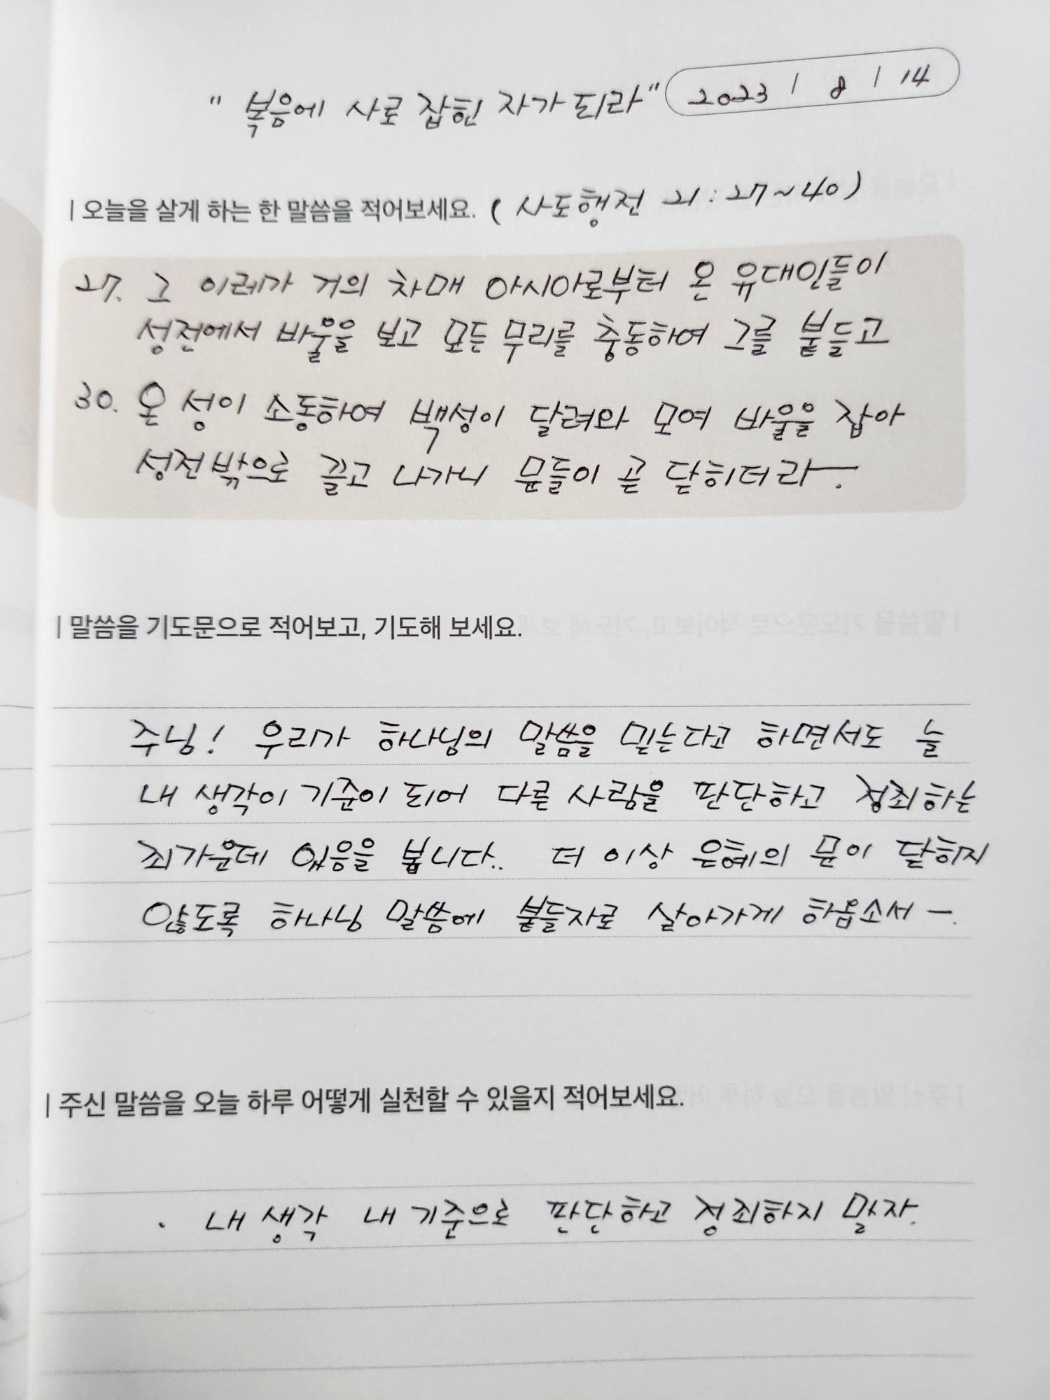 "복음에 사로 잡힌 자가 되라" 2023 / 8 / 14
| 오늘을 살게 하는 한 말씀을 적어보세요. ( 사도행전 21 : 27~40 )
27. 그 이레가 거의 차매 아시아로부터 온 유대인들이
성전에서 바울을 보고 모든 무리를 충동하여 그를 붙들고
30. 온 성이 소동하여 백성이 달려와 모여 바울을 잡아
성전 밖으로 끌고 나가니 문들이 곧 닫히더라ㅡ.
| 말씀을 기도문으로 적어보고, 기도해 보세요.
주님! 우리가 하나님의 말씀을 믿는다고 하면서도 늘
내 생각이 기준이 되어 다른 사람을 판단하고 정죄하는
죄가운데 있음을 봅니다.. 더 이상 은혜의 문이 닫히지
않도록 하나님 말씀에 붙들자로 살아가게 하옵소서 ㅡ.
| 주신 말씀을 오늘 하루 어떻게 실천할 수 있을지 적어보세요.
. 내 생각 내 기준으로 판단하고 정죄하지 말자.